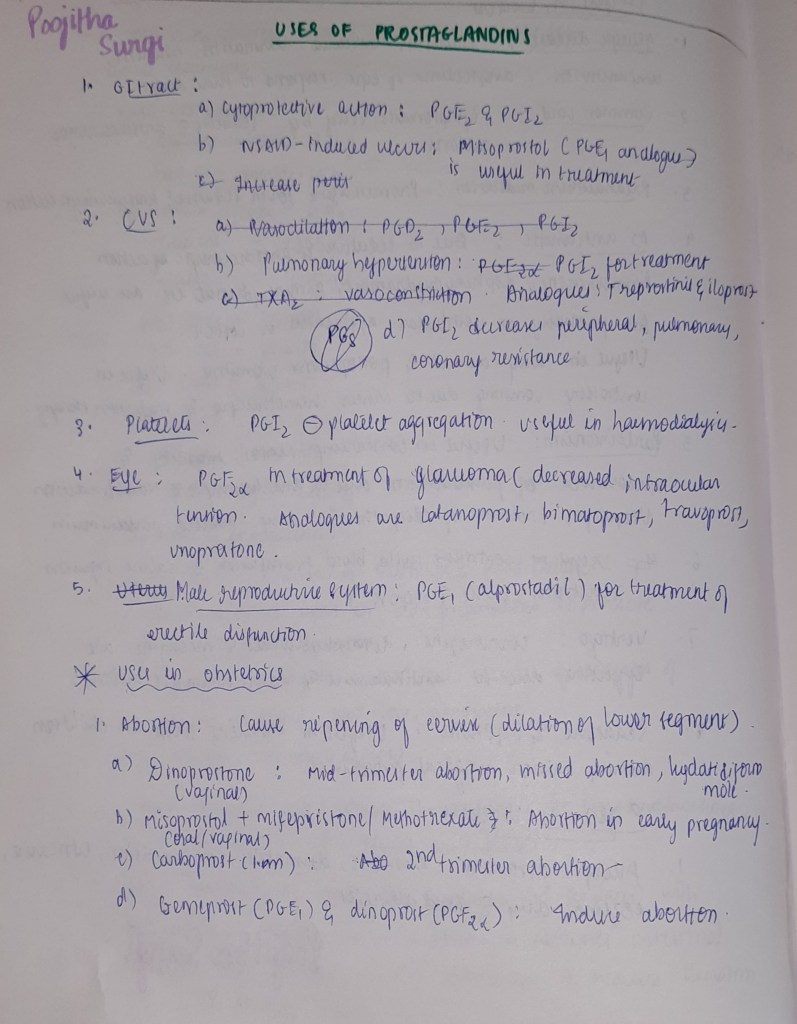 Poojitha
Surgi
USES OF PROSTAGLANDINS
1. GITract :
a) Cytoprotective action : PGE2 & PGI2
b) NSAID-Induced ulcers : Misoprostol (PGE1 analogue)
is useful in treatment
c) Increase peris
2. CVS :
a) Vasodilation : PGD2, PGE2, PGI2
b) Pulmonary hypertension : PGF2α PGI2 for treatment
c) TXA2 : vasoconstriction . Analogues : Treprostinil & iloprost
PGs d) PGI2 decreases peripheral, pulmonary,
coronary resistance
3. Platelets : PGI2 ⊖ platelet aggregation . useful in haemodialysis.
4. Eye : PGF2α in treatment of glaucoma ( decreased intraocular
tension . Analogues are Latanoprost, bimatoprost, travoprost,
unopratone .
5. Male reproductive system : PGE1 (alprostadil) for treatment of
erectile disfunction .
* Uses in obstetrics
1. Abortion : Cause ripening of cervix (dilation of lower segment) .
a) Dinoprostone : Mid-trimester abortion, missed abortion, hydatidiform
(vaginal) mole .
b) Misoprostol + mifepristone/ Methotrexate } : Abortion in early pregnancy .
(oral/vaginal)
c) Carboprost : Abo 2nd trimester abortion
d) Gemeprost (PGE1) & dinoprost (PGF2α) : Induce abortion .